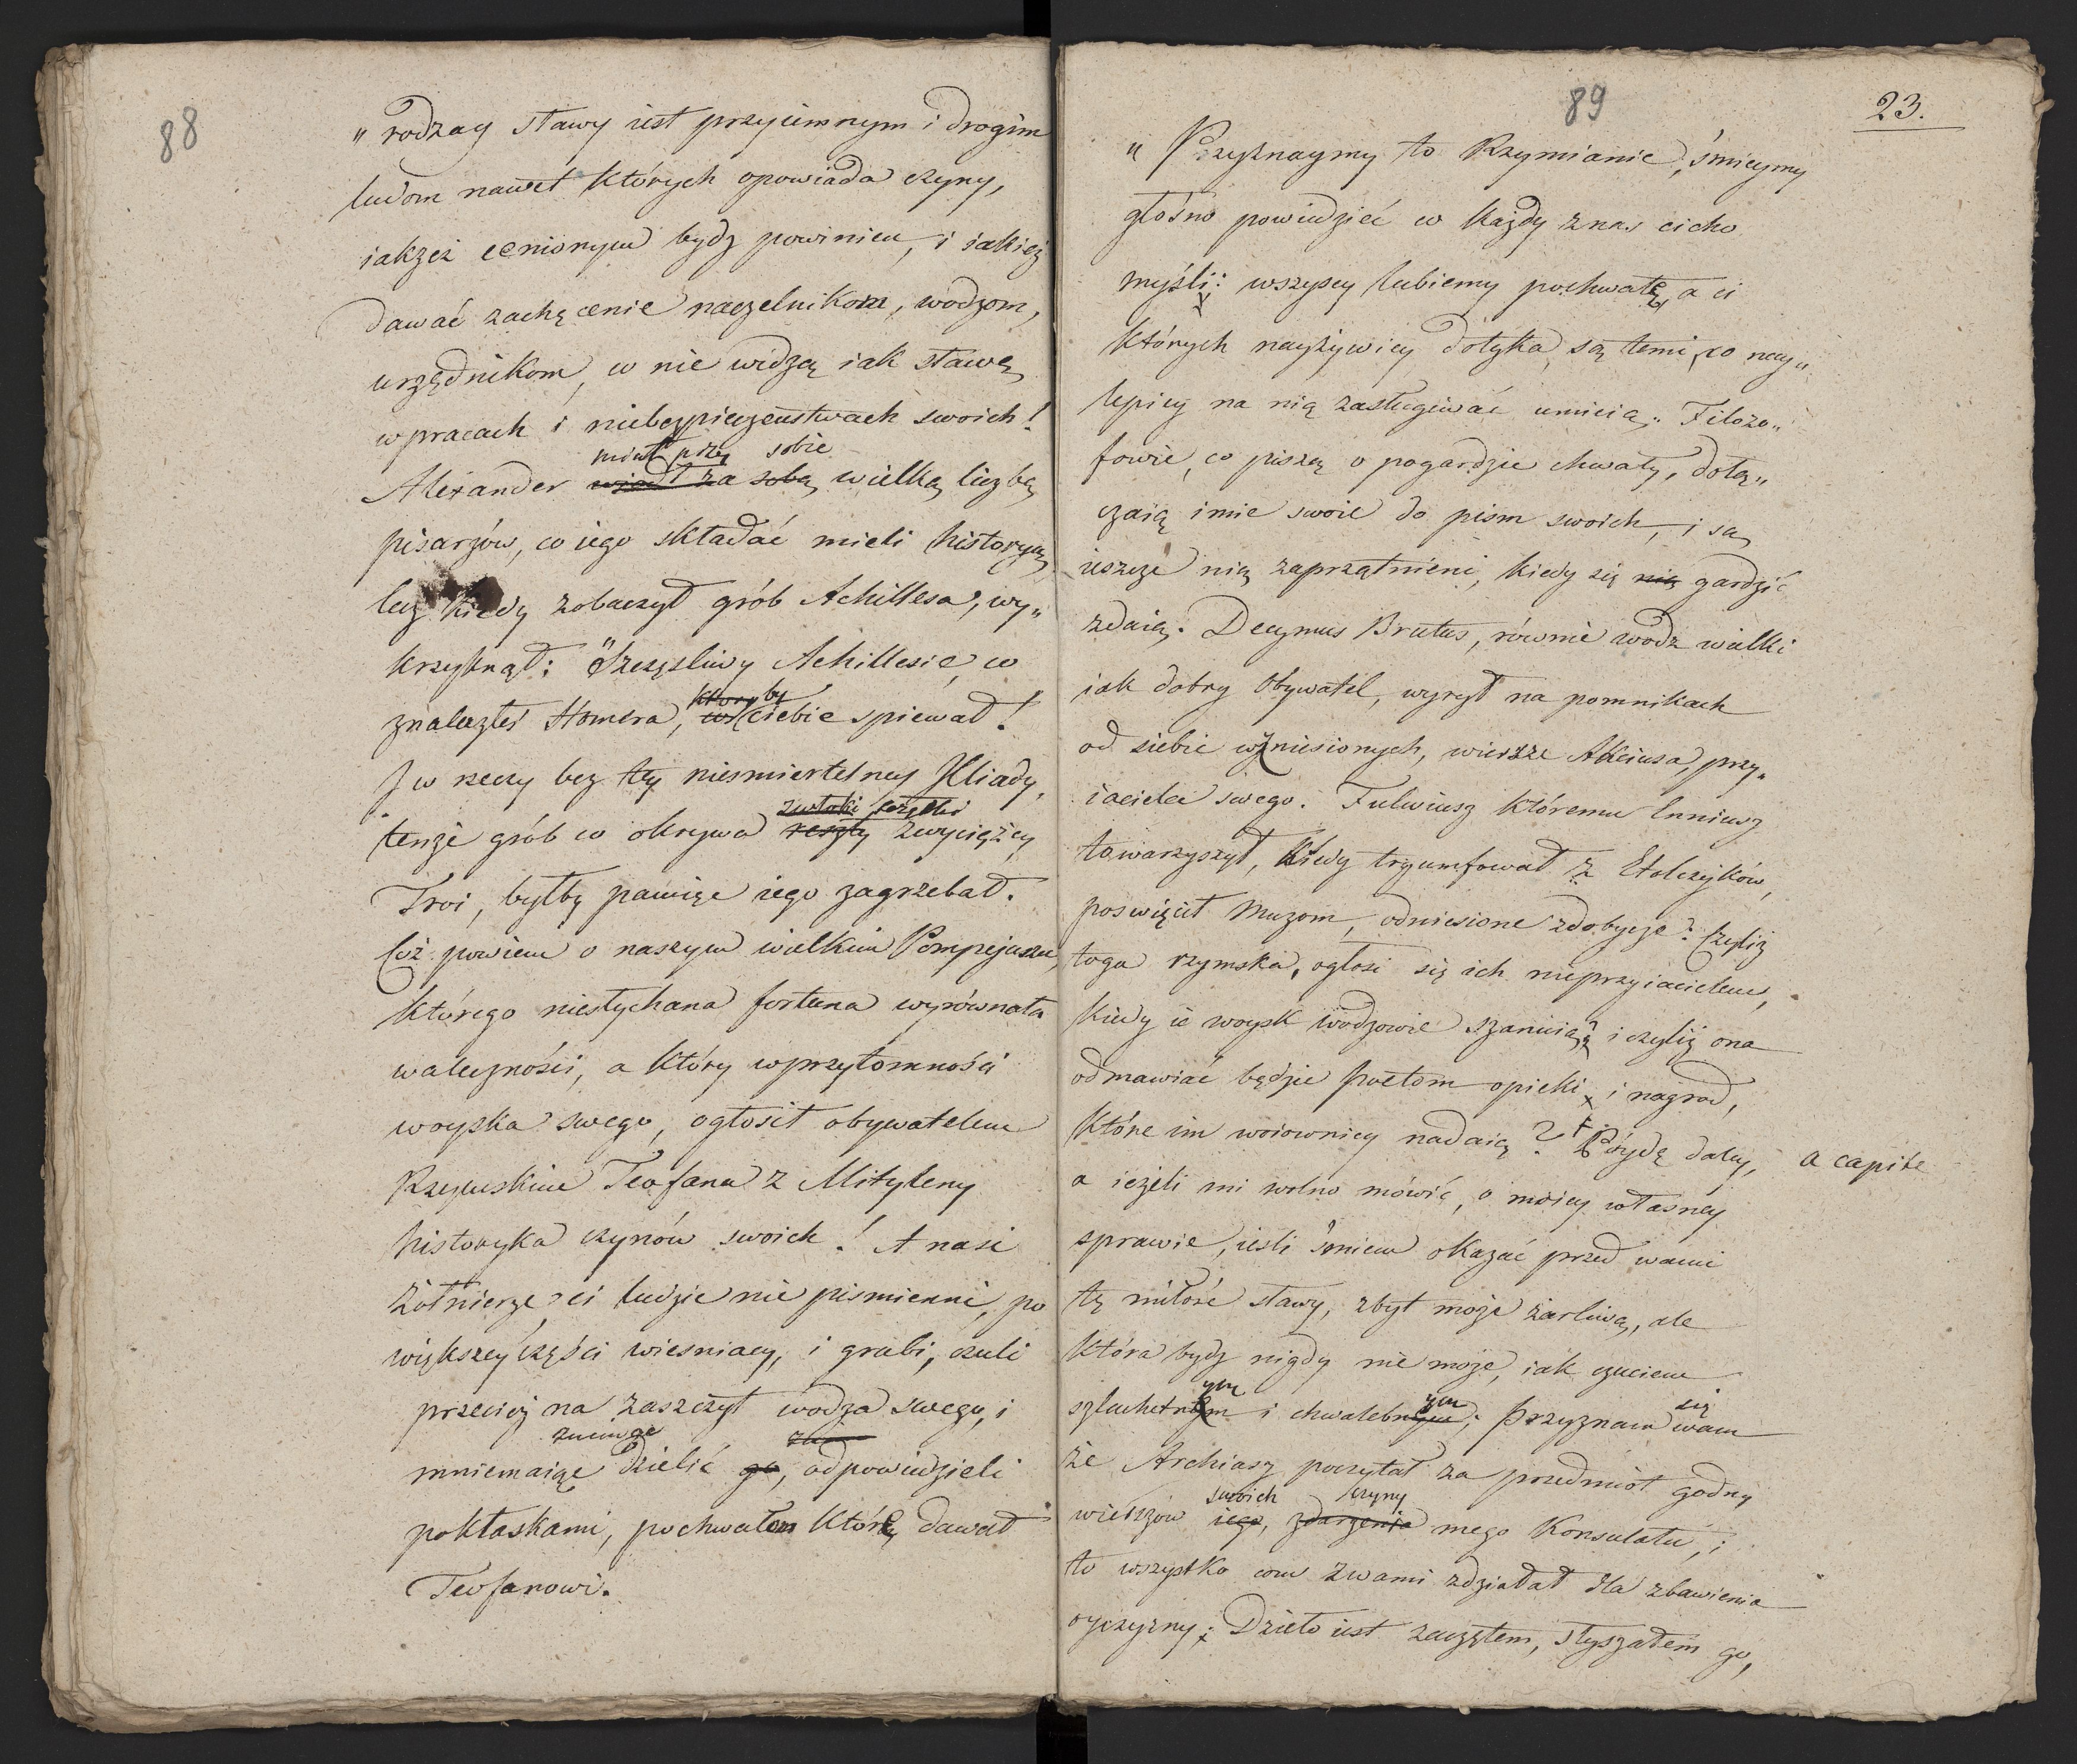 88
„ rodzay sławy iest przyiemnym i drogim
ludom nawet których opowiada czyny,
iakżeż cenionym bydź powinien, i iakież
dawać zachęcenie naczelnikom, wodzom,
urzędnikom, co nie widzą iak sławę,
w pracach i niebezpieczeństwach swoich!
miał przy sobie
Alexander wiodł za sobą wielką liczbę
pisarzów, co iego składać mieli historyą,
lecz kiedy zobaczył grób Achillesa, wy„
krzyknął: „Szczęśliwy Achillesie, co
któryby
znalazłeś Homera, co ciebie spiewał!
I w rzeczy bez tey niesmiertelney Iliady,
zwłoki cząstki
tenże grób co okrywa reszty zwycięzcy
Troi, byłby pamięć iego zagrzebał.
Coż powiem o naszym wielkim Pompejuszu,
którego niesłychana fortuna wyrównała
waleczności, a który w przytomności
woyska swego, ogłosił obywatelem
Rzymskim Teofana z Mityleny
historyka czynów swoich! A nasi
żołnierze, ci ludzie nie pismienni, po
większey części wiesniacy, i grubi, czuli
przecież na zaszczyt wodza swego, i
mniemaiąc dzielić go, odpowiedzieli
pokłaskami, pochwałom które dawał
Teofanowi.
89
23.
„ Przyznaymy to Rzymianie, śmieymy
głośno powiedzieć co każdy z nas cicho
myśli: wszyscy lubiemy pochwałę, a ci
których nayżywiey dotyka, są temi, co nay„
lepiey na nią zasługiwać umieią. Filozo„
fowie, co piszą o pogardzie chwały, dołą„
czaią imie swoie do pism swoich, i są
ieszcze nią zaprzątnieni, kiedy się nią gardzić
zdaią. Decymus Brutus, równie wodz wielki
iak dobry Obywatel, wyrył na pomnikach
od siebie wzniesionych, wiersze Akciusa, przy„
iaciela swego. Fulwiusz któremu Enniusz
towarzyszył, kiedy tryumfował z Etolczyków,
poswięcił Muzom, odniesione zdobycze? Czyliż
toga rzymska, ogłosi się ich nieprzyiacielem,
kiedy ie woysk wodzowie szanuią? i czyliż ona
odmawiać będzie poetom opieki i nagrod,
które im woiownicy nadaią? Póydę daley, a capite
a ieżeli mi wolno mówić, o moiey własney
sprawie, iesli śmiem okazać przed wami
tę miłość sławy, zbyt może żarliwą, ale
która bydź nigdy nie może, iak czuciem
ym ym się
szlachetnem i chwalebnym; przyznam wam
że Archiasz poczytał za przedmiot godny
swoich czyny
wierszów iego, zdarzenia mego Konsulatu, i
to wszystko com z wami zdziałał dla zbawienia
oyczyzny; Dzieło iest zaczętem, słyszałem go,